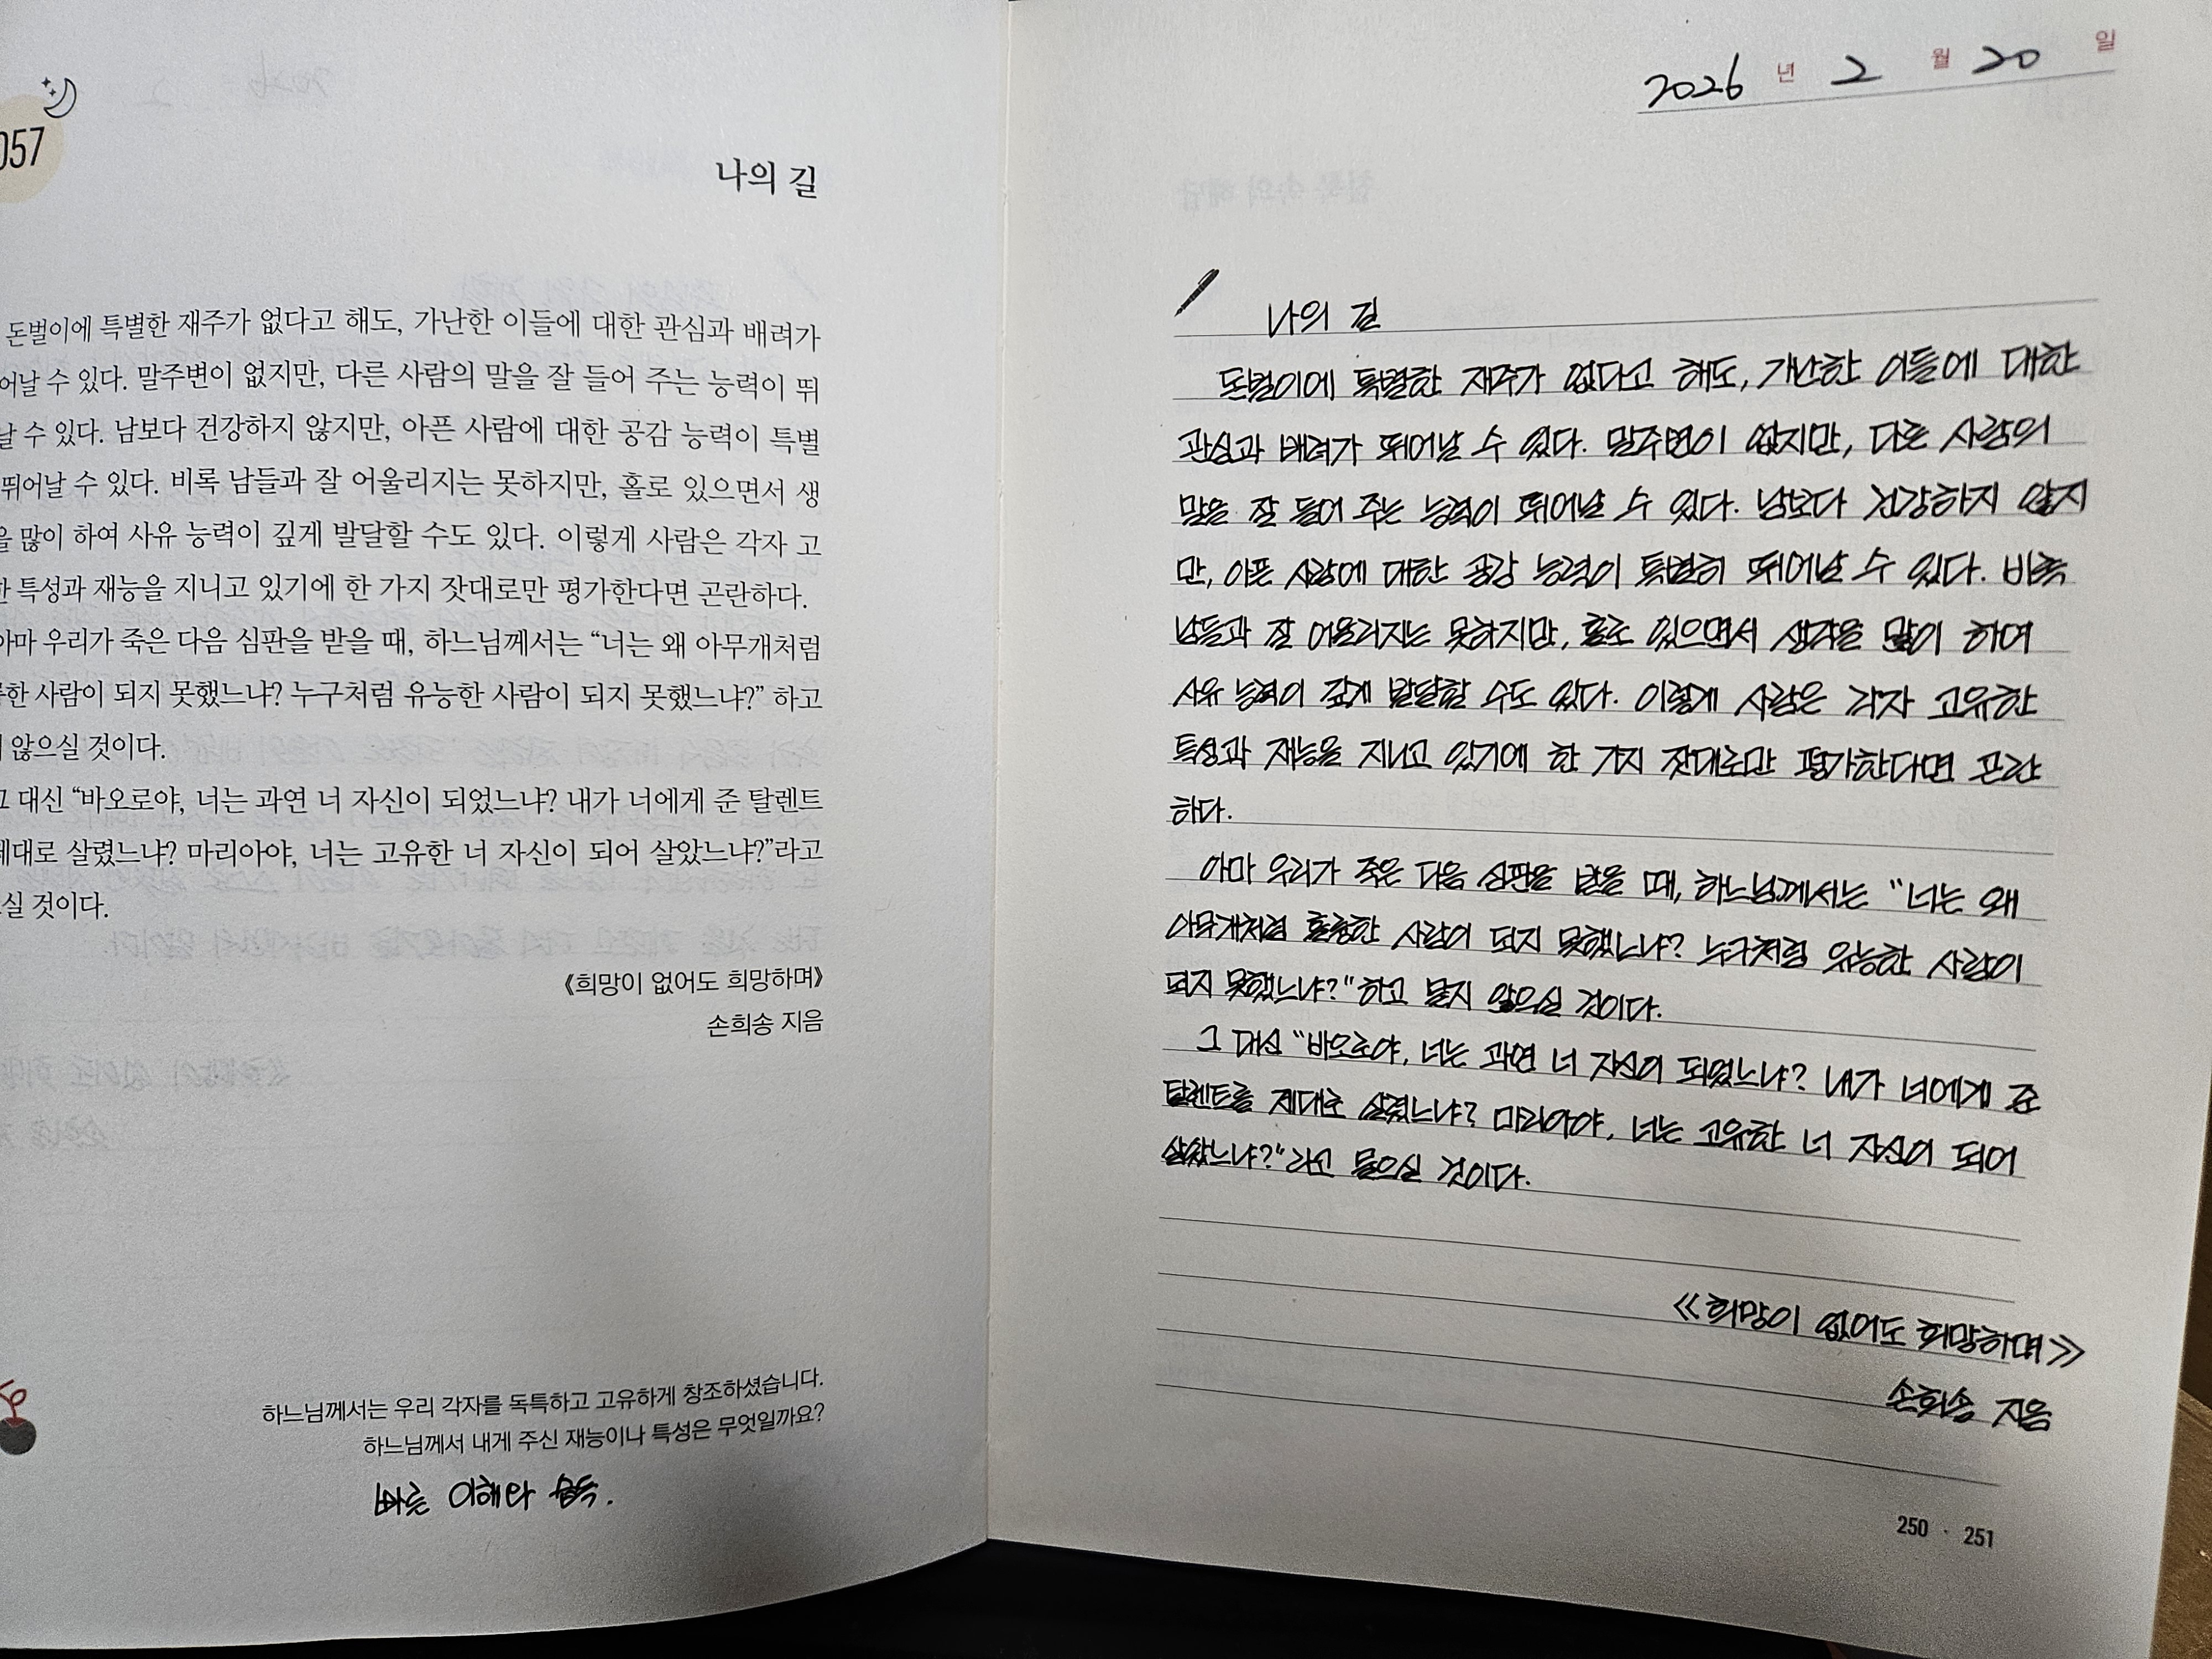 057
나의 길
돈벌이에 특별한 재주가 없다고 해도, 가난한 이들에 대한 관심과 배려가
어날 수 있다. 말주변이 없지만, 다른 사람의 말을 잘 들어 주는 능력이 뛰
날 수 있다. 남보다 건강하지 않지만, 아픈 사람에 대한 공감 능력이 특별
뛰어날 수 있다. 비록 남들과 잘 어울리지는 못하지만, 홀로 있으면서 생
을 많이 하여 사유 능력이 깊게 발달할 수도 있다. 이렇게 사람은 각자 고
한 특성과 재능을 지니고 있기에 한 가지 잣대로만 평가한다면 곤란하다.
아마 우리가 죽은 다음 심판을 받을 때, 하느님께서는 “너는 왜 아무개처럼
한 사람이 되지 못했느냐? 누구처럼 유능한 사람이 되지 못했느냐?” 하고
않으실 것이다.
그 대신 “바오로야, 너는 과연 너 자신이 되었느냐? 내가 너에게 준 탈렌트
제대로 살렸느냐? 마리아야, 너는 고유한 너 자신이 되어 살았느냐?”라고
실 것이다.
《희망이 없어도 희망하며》
손희송 지음
하느님께서는 우리 각자를 독특하고 고유하게 창조하셨습니다.
하느님께서 내게 주신 재능이나 특성은 무엇일까요?
빠른 이해와 습득.
2026 년 2 월 20 일
나의 길
돈벌이에 특별한 재주가 없다고 해도, 가난한 이들에 대한
관심과 배려가 뛰어날 수 있다. 말주변이 없지만, 다른 사람의
말을 잘 들어 주는 능력이 뛰어날 수 있다. 남보다 건강하지 않지
만, 아픈 사람에 대한 공감 능력이 특별히 뛰어날 수 있다. 비록
남들과 잘 어울리지는 못하지만, 홀로 있으면서 생각을 많이 하여
사유 능력이 깊게 발달할 수도 있다. 이렇게 사람은 각자 고유한
특성과 재능을 지니고 있기에 한 가지 잣대로만 평가한다면 곤란
하다.
아마 우리가 죽은 다음 심판을 받을 때, 하느님께서는 “너는 왜
아무개처럼 훌륭한 사람이 되지 못했느냐? 누구처럼 유능한 사람이
되지 못했느냐?” 하고 묻지 않으실 것이다.
그 대신 “바오로야, 너는 과연 너 자신이 되었느냐? 내가 너에게 준
탈렌트를 제대로 살렸느냐? 마리아야, 너는 고유한 너 자신이 되어
살았느냐?”라고 물으실 것이다.
《희망이 없어도 희망하며》
손희송 지음
250 · 251